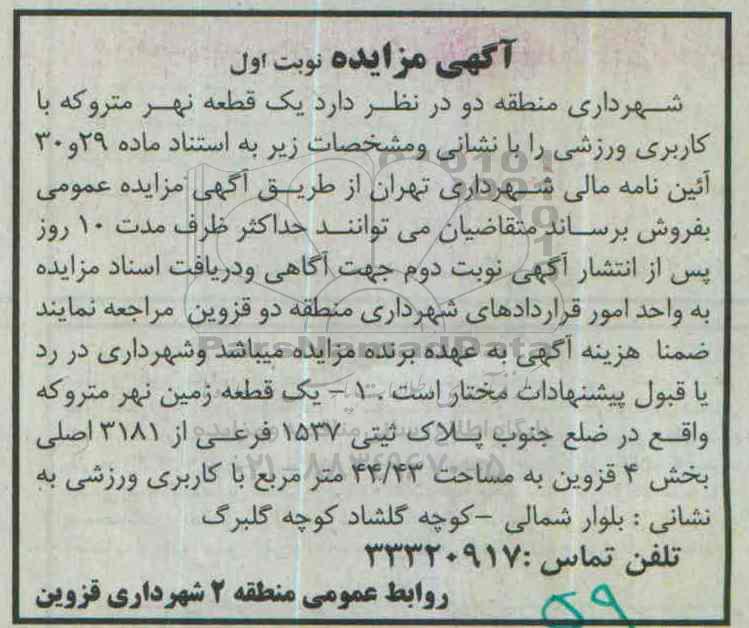 آگهی مزایده نوبت اول
شهرداری منطقه دو در نظر دارد یک قطعه نهر متروکه با
کاربری ورزشی را با نشانی ومشخصات زیر به استناد ماده ۲۹و۳۰
آئین نامه مالی شهرداری تهران از طریق آگهی مزایده عمومی
بفروش برساند متقاضیان می توانند حداکثر ظرف مدت ۱۰ روز
پس از انتشار آگهی نوبت دوم جهت آگاهی ودریافت اسناد مزایده
به واحد امور قراردادهای شهرداری منطقه دو قزوین مراجعه نمایند
ضمنا هزینه آگهی به عهده برنده مزایده میباشد وشهرداری در رد
یا قبول پیشنهادات مختار است . ۱ – یک قطعه زمین نهر متروکه
واقع در ضلع جنوب پلاک ثبتی ۱۵۳۷ فرعی از ۳۱۸۱ اصلی
بخش ۴ قزوین به مساحت ۴۴/۴۳ متر مربع با کاربری ورزشی به
نشانی : بلوار شمالی –کوچه گلشاد کوچه گلبرگ
تلفن تماس :۳۳۳۲۰۹۱۷
روابط عمومی منطقه ۲ شهرداری قزوین
۵۹
ParsNamadData
۰۲۱-۸۸۳۴۹۶۷۰-۵